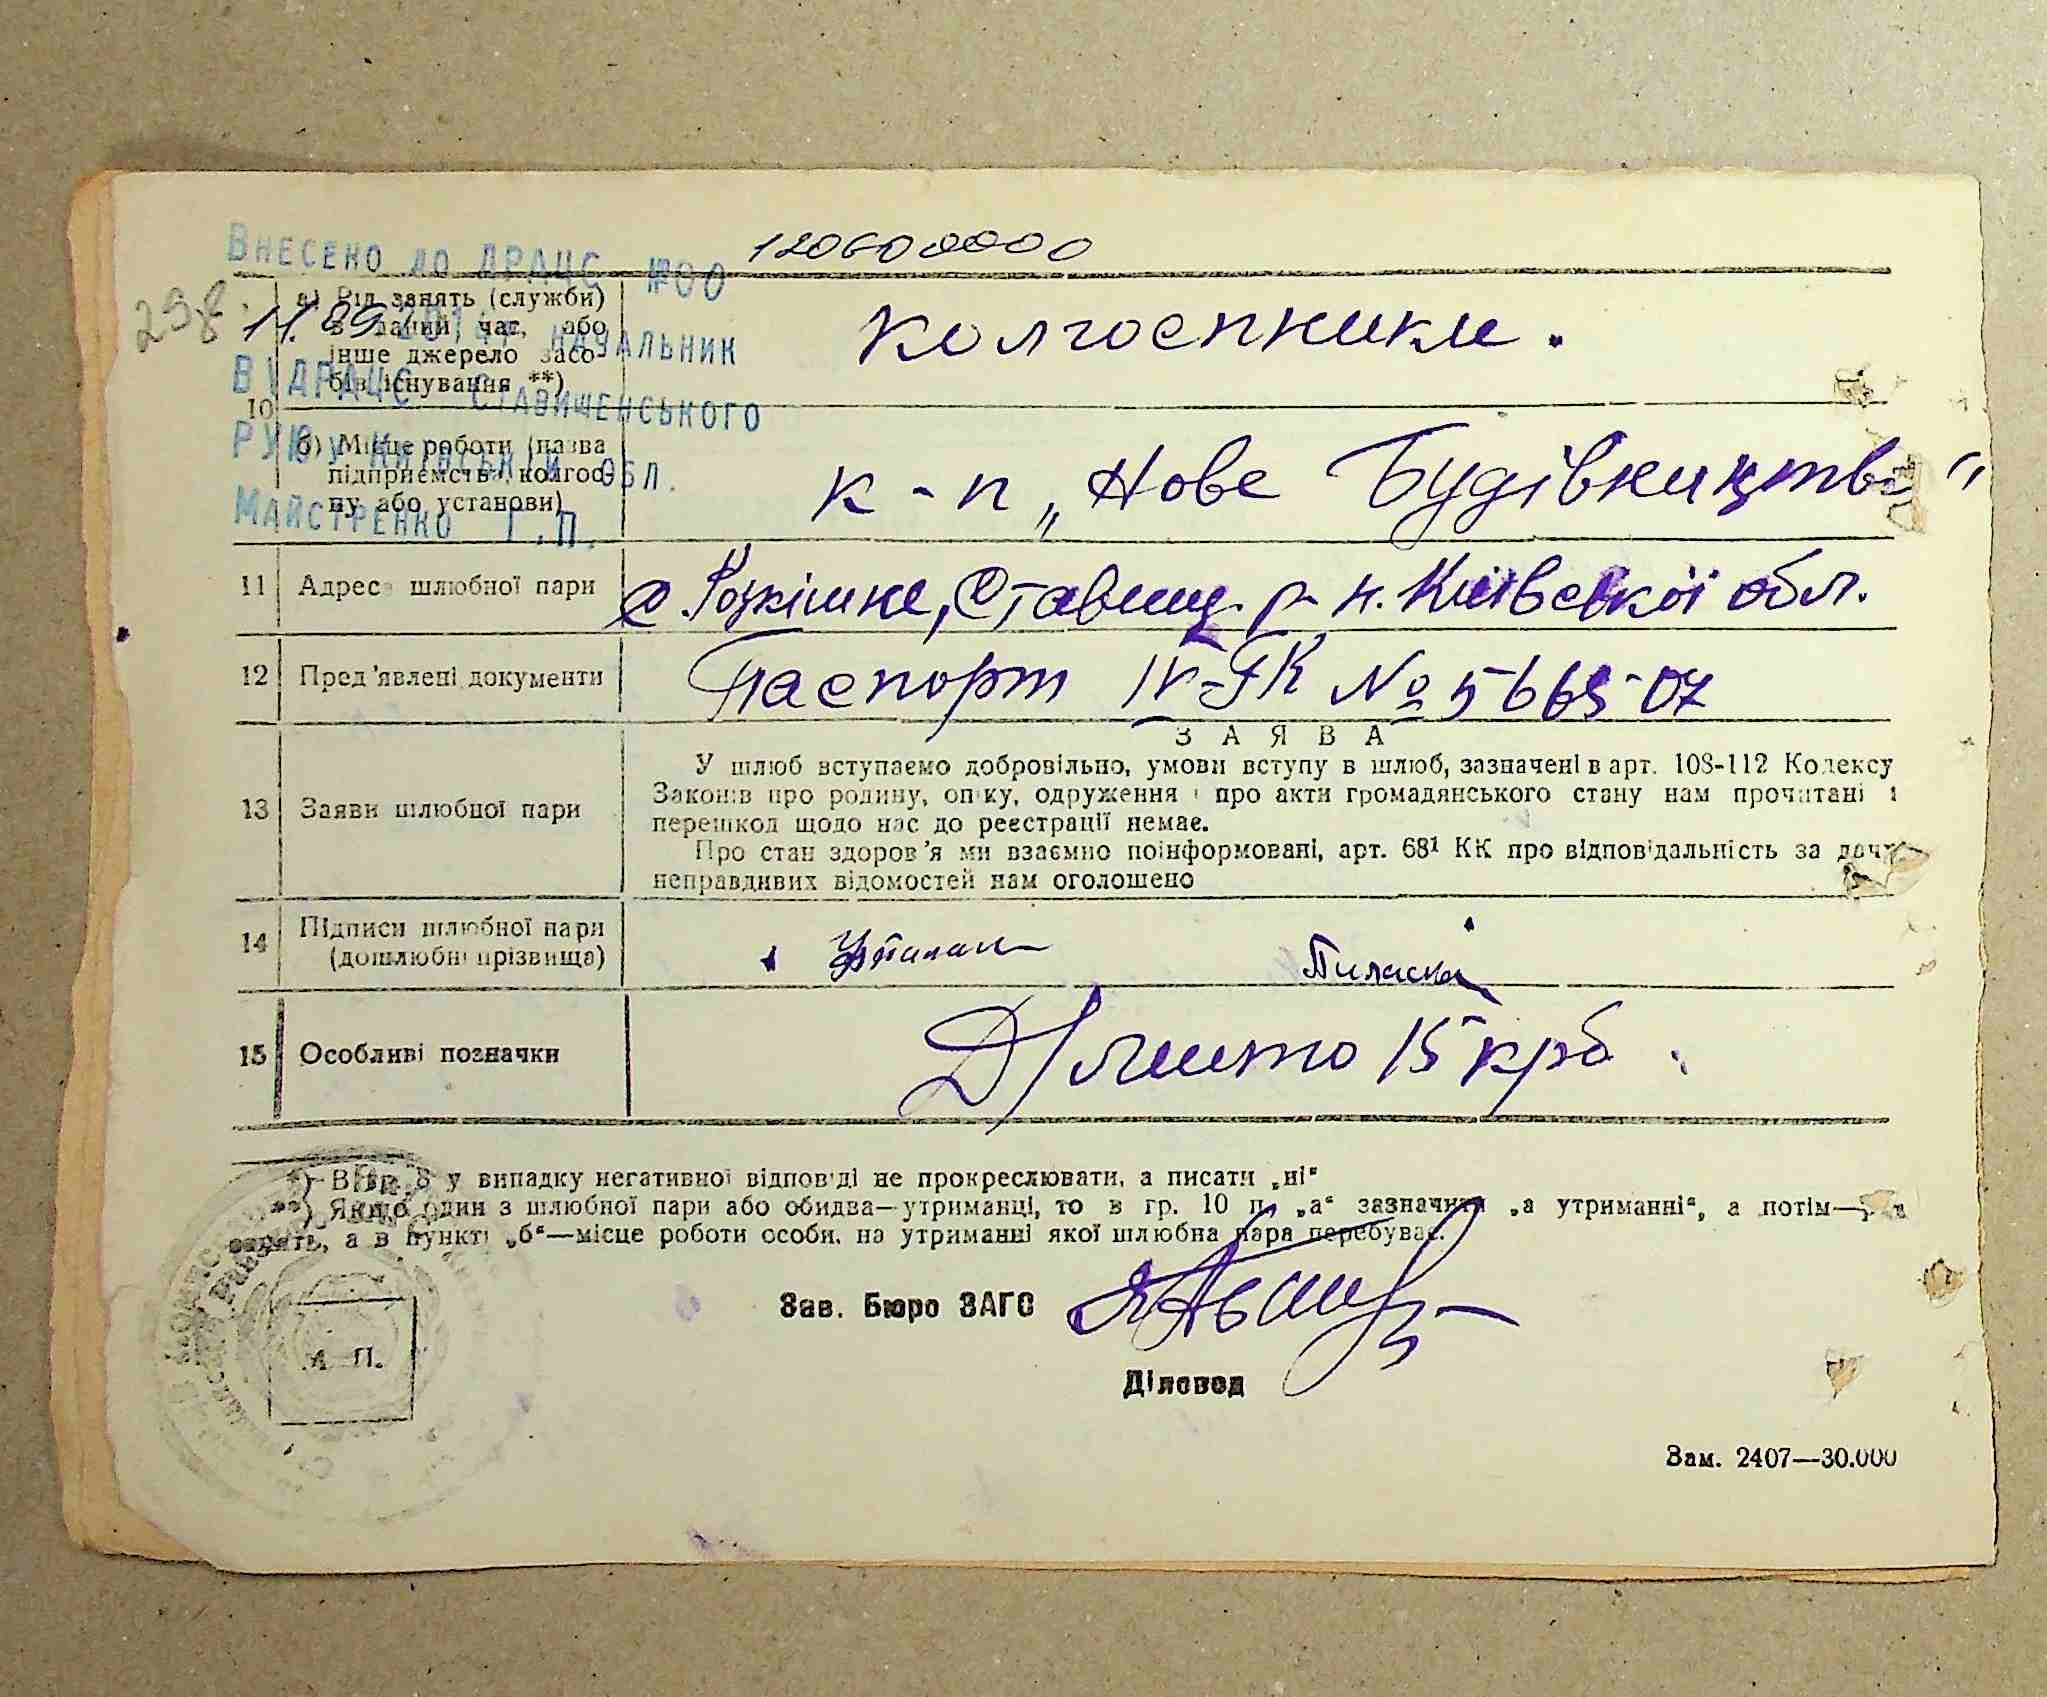 Внесено до ДРАЦС №00 120600000
298. 11.09.2014 начальник
ВДРАЦС Ставищенського
РУЮ у Київській обл.
Майстренко Г.П.
10 а) Рід занять (служби)
в даний час, або
інше джерело засо-
бів існування **)
колгоспники.
б) Місце роботи (назва
підприємств, колгос-
пу або установи)
к-п „Нове Будівництво"
11 Адреса шлюбної пари с Розкішне, Ставищ. р-н. Київської обл.
12 Пред'явлені документи Паспорт № 566507
13 Заяви шлюбної пари
ЗАЯВА
У шлюб вступаємо добровільно, умови вступу в шлюб, зазначені в арт. 108-112 Кодексу
Законів про родину, опіку, одруження і про акти громадянського стану нам прочитані і
перешкод щодо нас до реєстрації немає.
Про стан здоров'я ми взаємно поінформовані, арт. 68¹ КК про відповідальність за дачу
неправдивих відомостей нам оголошено
14 Підписи шлюбної пари
(дошлюбні прізвища)
15 Особливі позначки 15 крб.
*) В гр. 8 у випадку негативної відповіді не прокреслювати, а писати „ні"
**) Якщо один з шлюбної пари або обидва—утриманці, то в гр. 10 п. „а" зазначити „а утриманні", а потім—
а в пункті „б"—місце роботи особи, на утриманні якої шлюбна пара перебуває.
Зав. Бюро ЗАГС
М. П.
Діловод
Зам. 2407—30.000